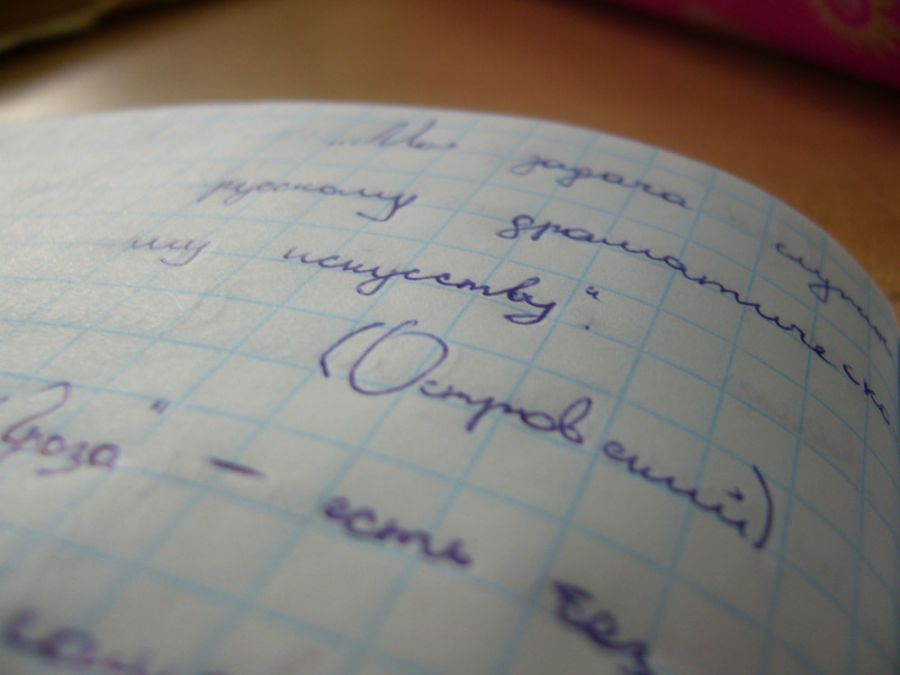 „Моя задача служи
русскому драматическо
му искусству“.
(Островский)
„Гроза“ – есть без